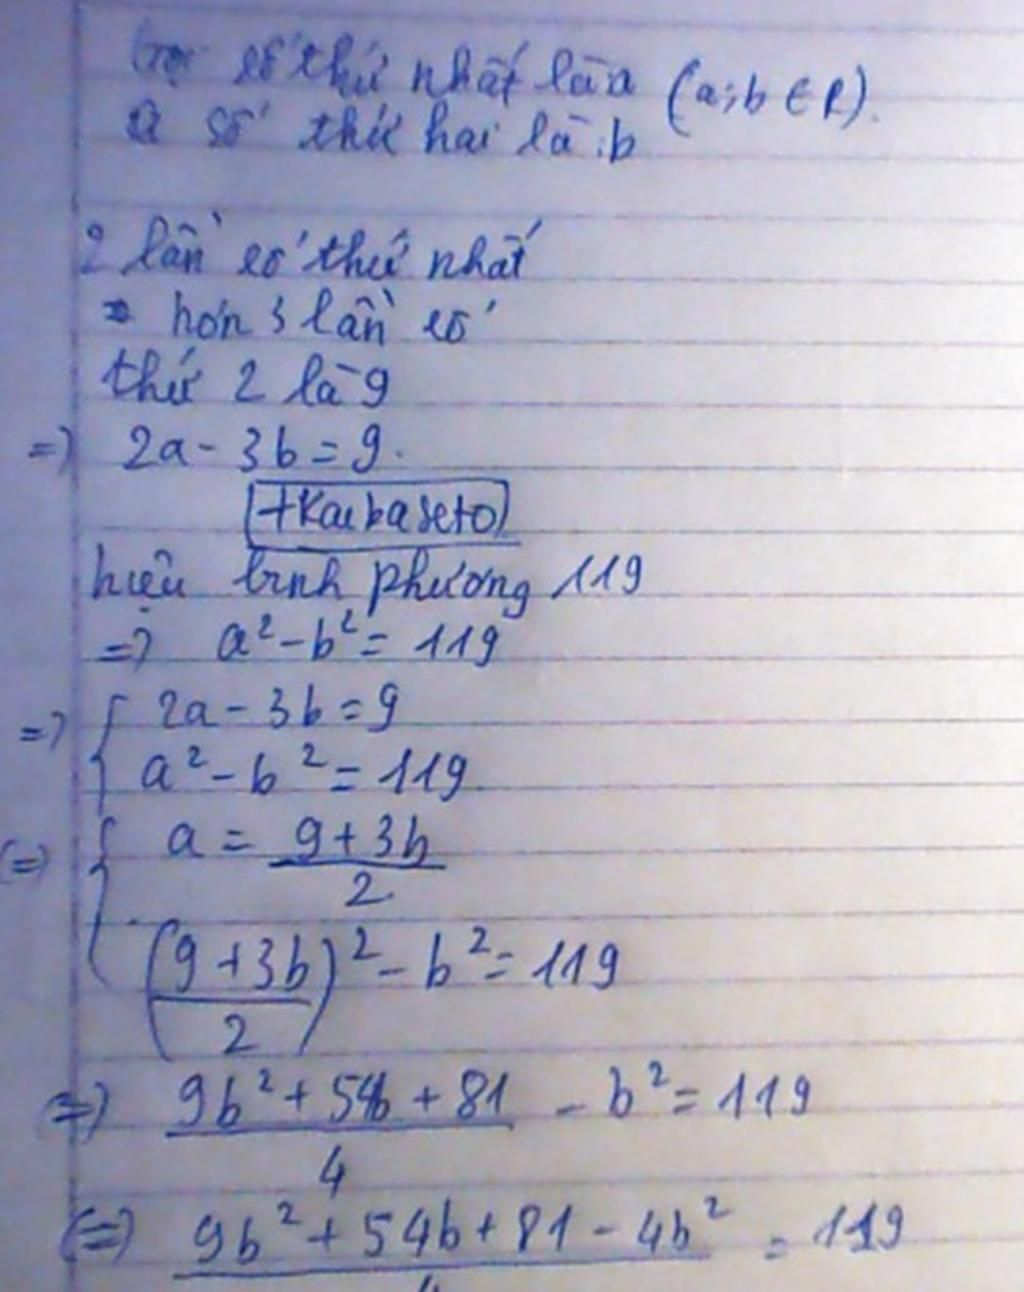 Gọi số thứ nhất là a (a;b ∈ R).
số thứ hai là :b
2 lần số thứ nhất
hơn 3 lần số
thứ 2 là 9
=> 2a - 3b = 9.
+Kaibaseto
hiệu bình phương 119
=> a² - b² = 119
=> { 2a - 3b = 9
a² - b² = 119
(=) { a = (9 + 3b)/2
((9 + 3b)/2)² - b² = 119
=> (9b² + 54b + 81)/4 - b² = 119
(=) (9b² + 54b + 81 - 4b²)/4 = 119